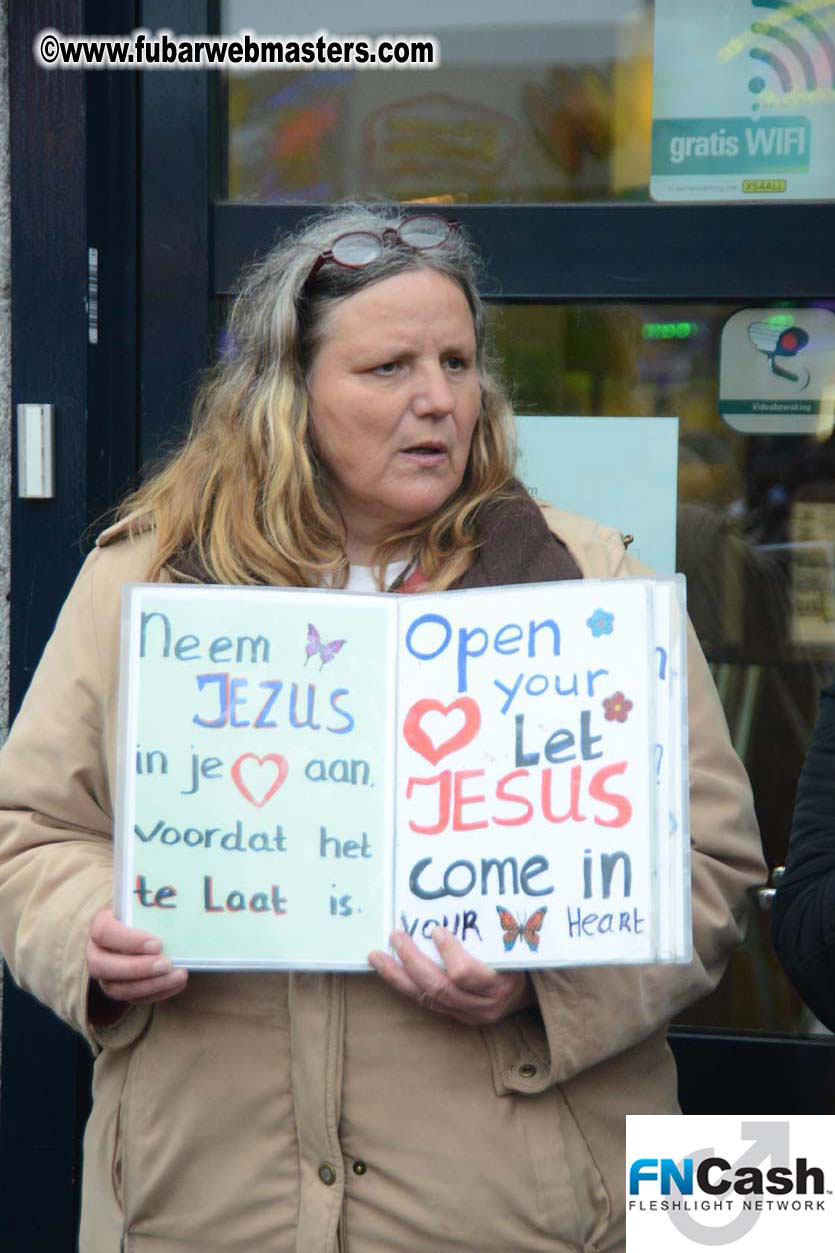 ©www.fubarwebmasters.com
gratis WIFI
XS4ALL
Videobewaking
Neem
JEZUS
in je aan.
voordat het
te Laat is.
Open
your
Let
JESUS
come in
YOUR Heart
?
FNCash
FLESHLIGHT NETWORK